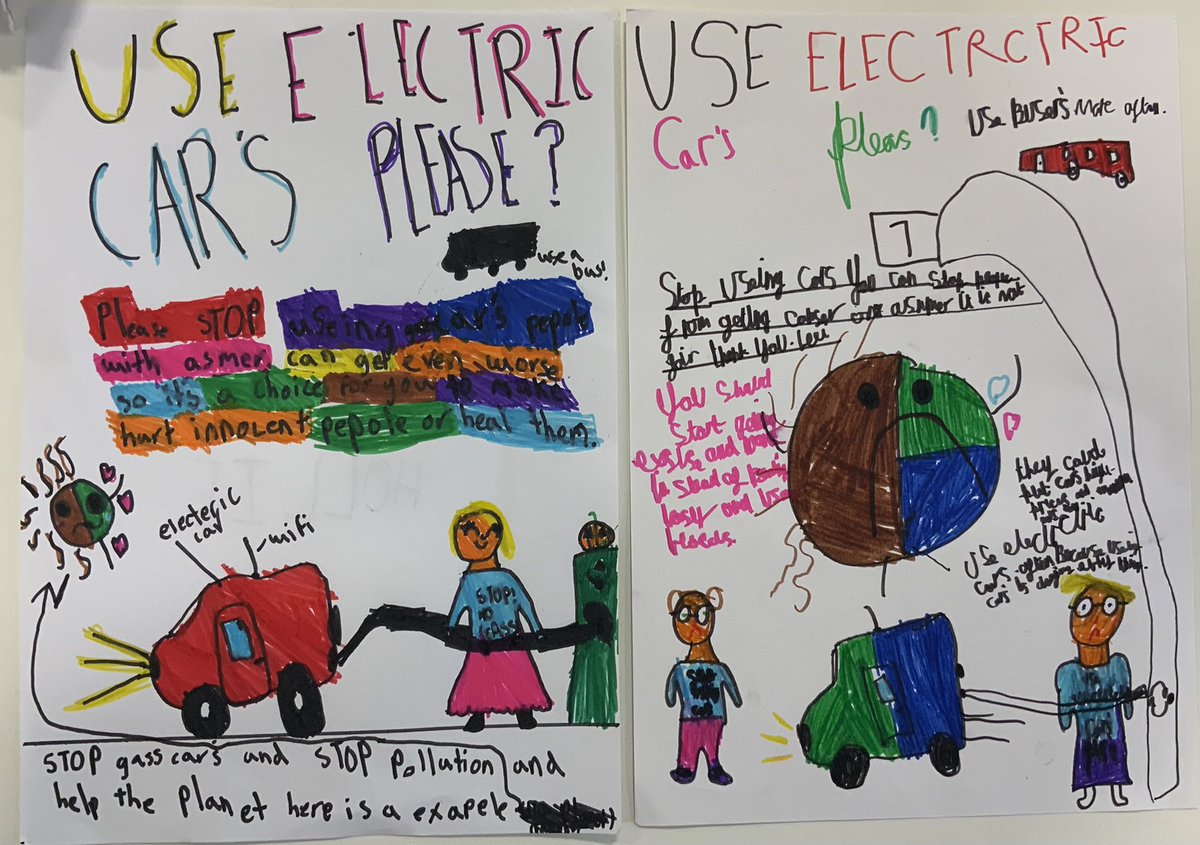 USE ELECTRIC
CAR'S PLEASE?
use a
bus!
Please STOP useing car's pepole
with asmer can get even worse
so it's a choice for you to make
hurt innocent pepole or heal them.
electegic
car
wifi
STOP!
NO
GASS!
STOP gass car's and STOP pollution and
help the planet here is a exapele
USE ELECTRCTRIC
Car's pleas?
Use Buser's More often.
7
Stop useing cars You can stop
from getting canser asmper it is not
fair thank You.
You should
Start going
and
in stead of being
lasy and use
they could
Use electric
cars often because useing
cars is